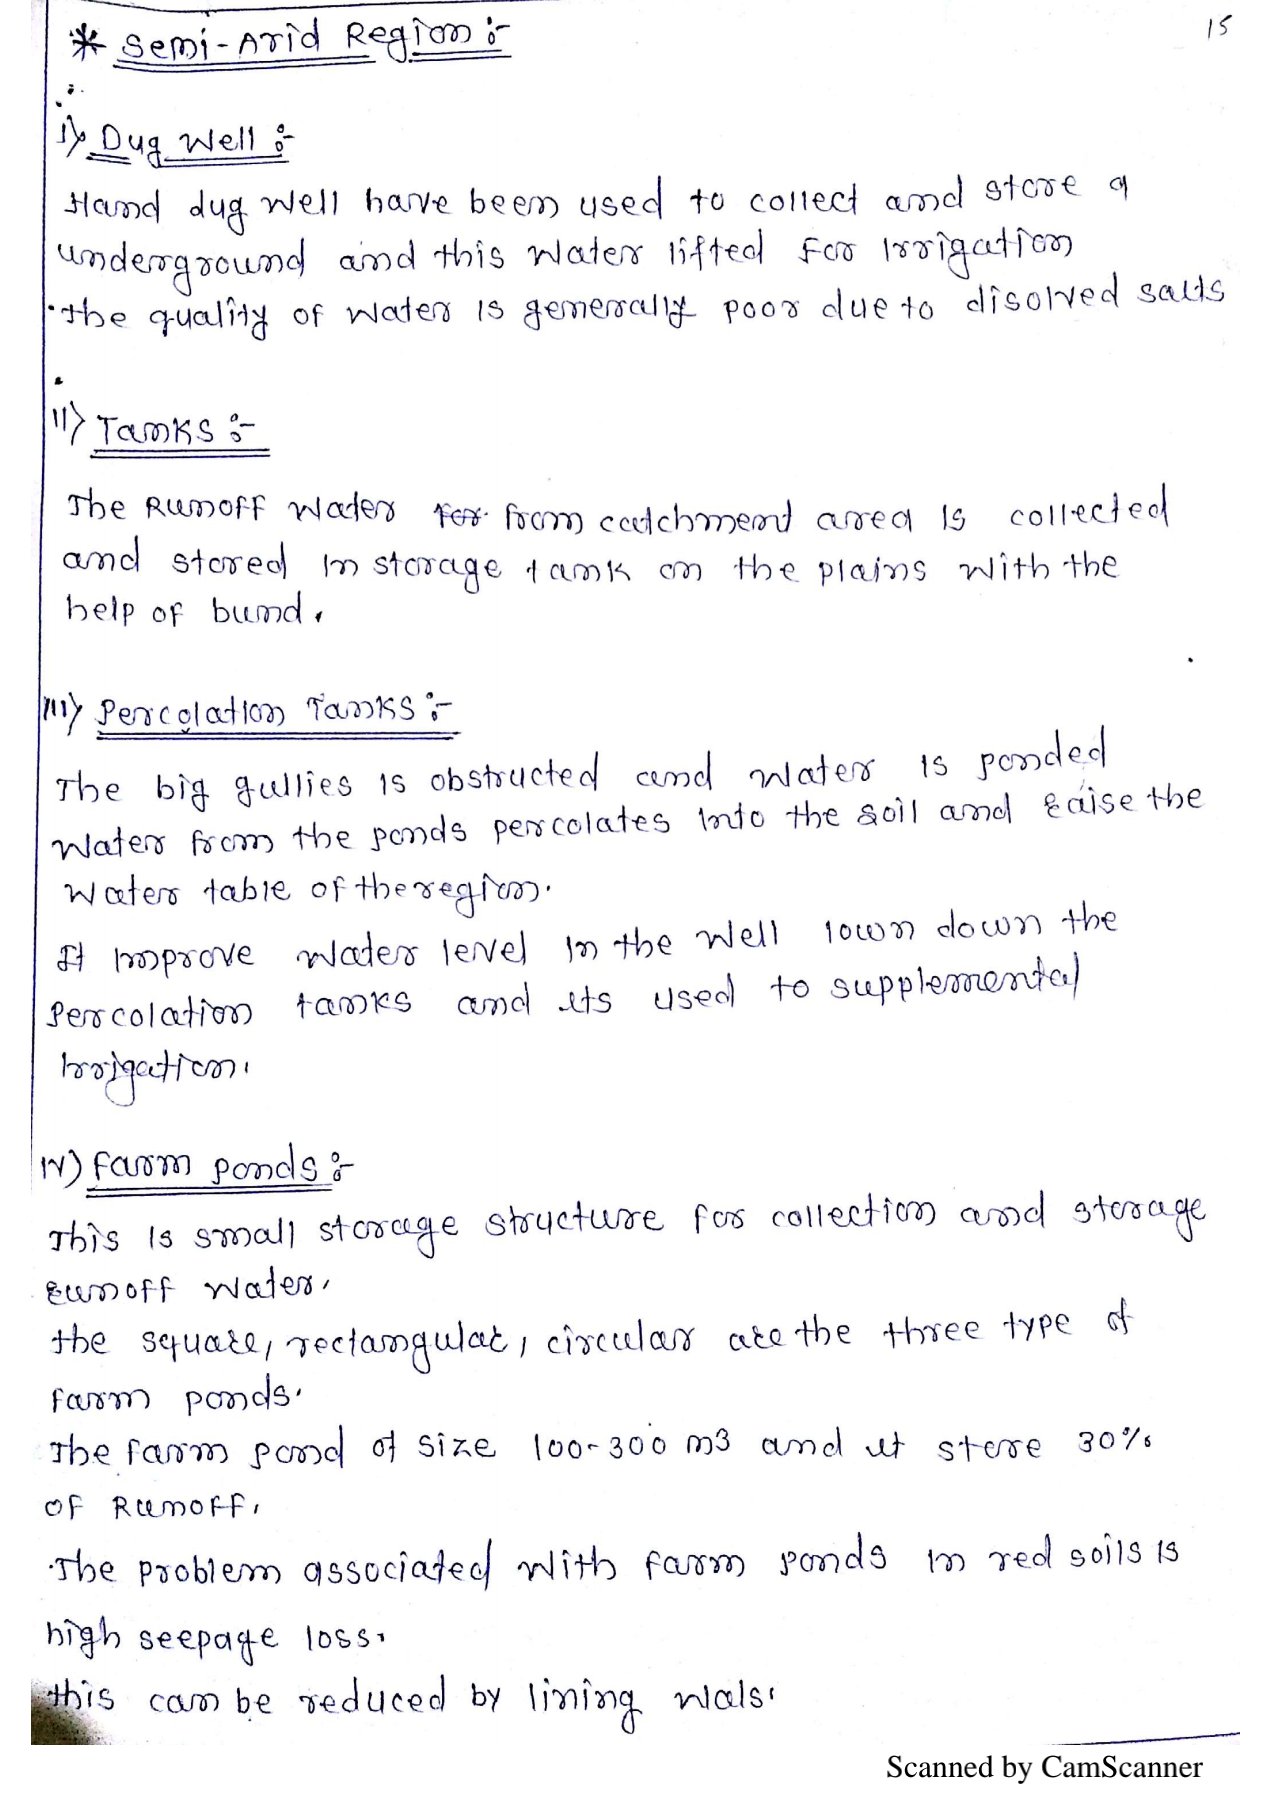 15
* Semi-Arid Region :-
i) Dug Well :-
Hand dug well have been used to collect and store a
underground and this water lifted for irrigation
·the quality of water is generally poor due to disolved salts
ii) Tanks :-
The Runoff water for from catchment area is collected
and stored in storage tank on the plains with the
help of bund.
iii) Percolation Tanks :-
The big gullies is obstructed and water is ponded
water from the ponds percolates into the soil and raise the
water table of the region.
It improve water level in the well lown down the
percolation tanks and its used to supplemental
irrigation.
iv) Farm ponds :-
This is small storage structure for collection and storage
runoff water.
the square, rectangular, circular are the three type of
farm ponds.
The farm pond of size 100-300 m3 and it store 30%
of Runoff.
·The problem associated with farm ponds in red soils is
high seepage loss.
this can be reduced by lining wals.
Scanned by CamScanner